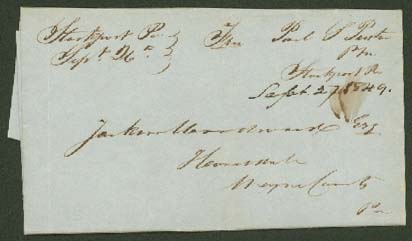 Stockport Pa
Sept. 26
Free Paul S Preston
P.M.
Stockport Pa
Sept 27 1849.
Jackson Woodward Esq
Honesdale
Wayne County
Pa